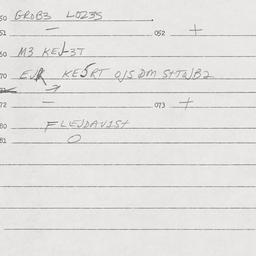 50 GROB3 LOZ35
51 — 052 +
60 M3 KEL3T
70 EJR KESRT O/S DM S+TO/B2
72 — 073 +
80 FLEJDAVIS+
81 O